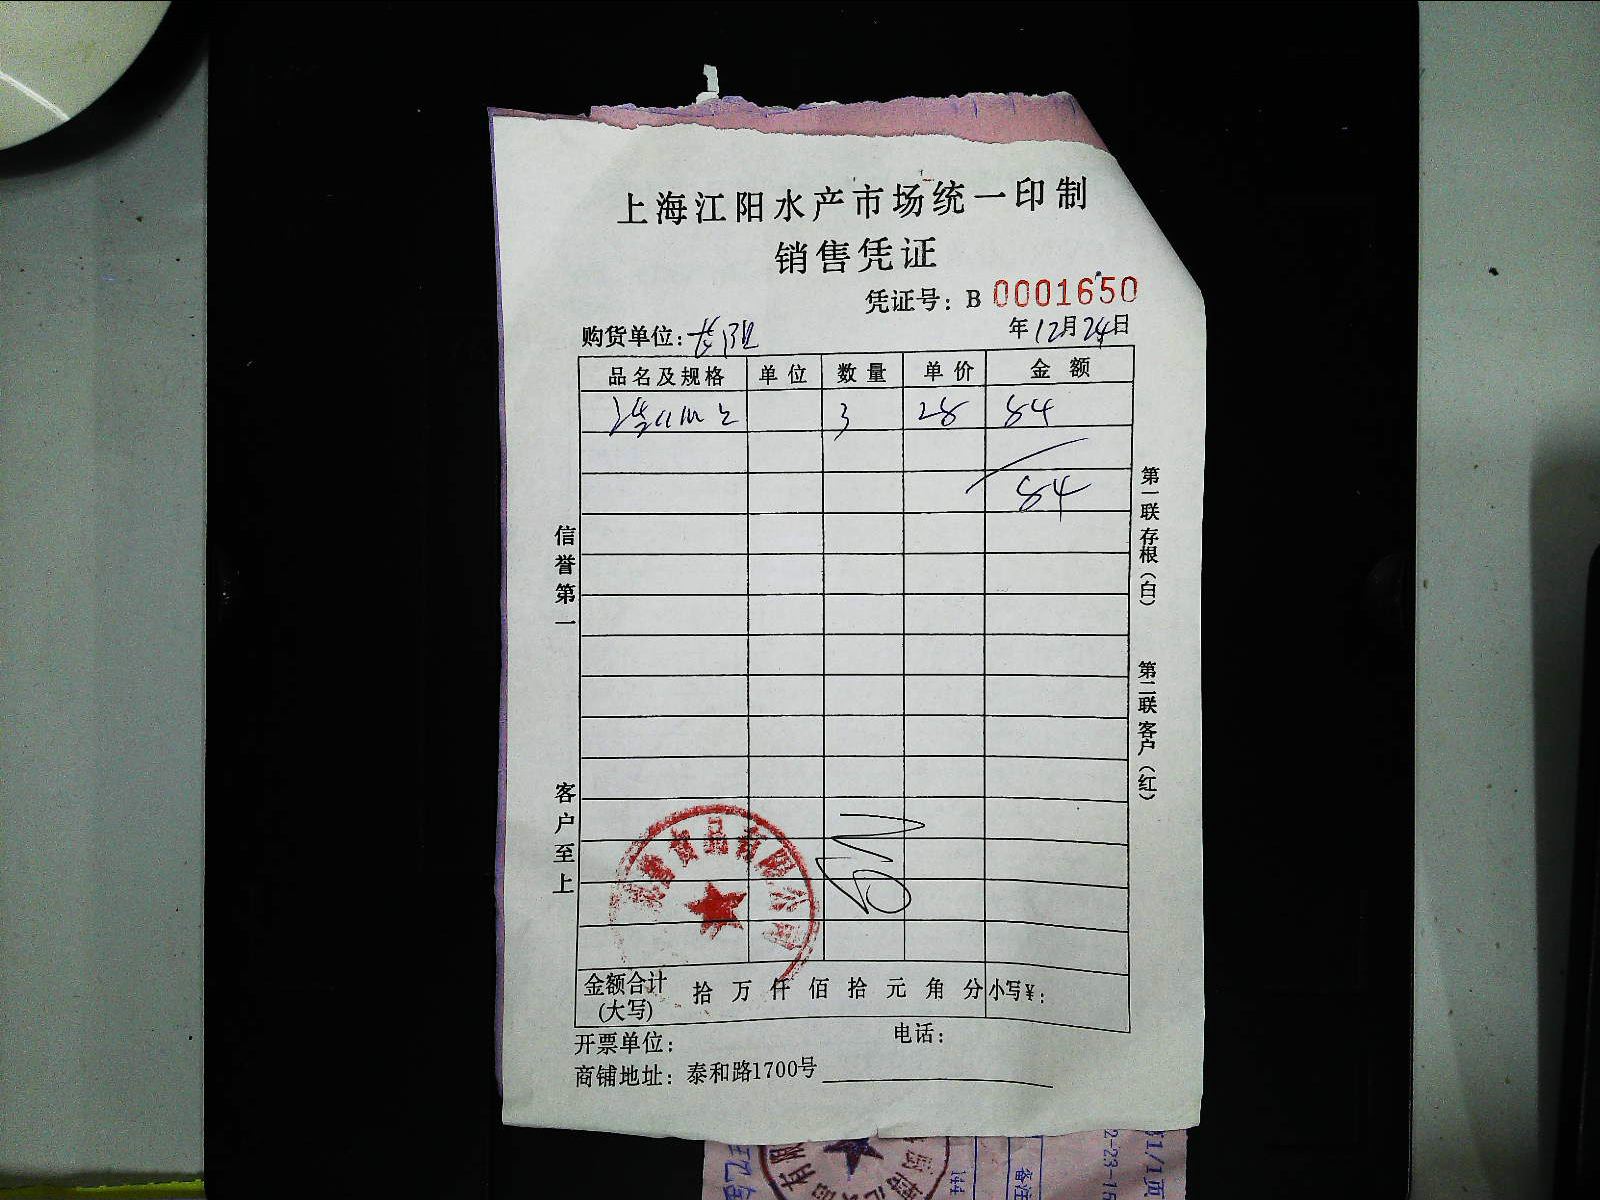 上海江阳水产市场统一印制
销售凭证
凭证号: B 0001650
购货单位: 长阳 年12月24日
品名及规格 单位 数量 单价 金额
3 28 84
84
信誉第一
客户至上
第一联存根(白)
第二联客户(红)
食品有限公司
金额合计(大写) 拾 万 仟 佰 拾 元 角 分 小写¥:
开票单位: 电话:
商铺地址: 泰和路1700号
144
备注
1/1页